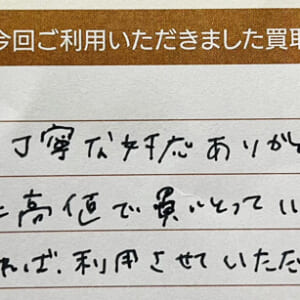 今回ご利用いただきました買取
丁寧な対応ありが
高値で買いとってい
れば、利用させていただ